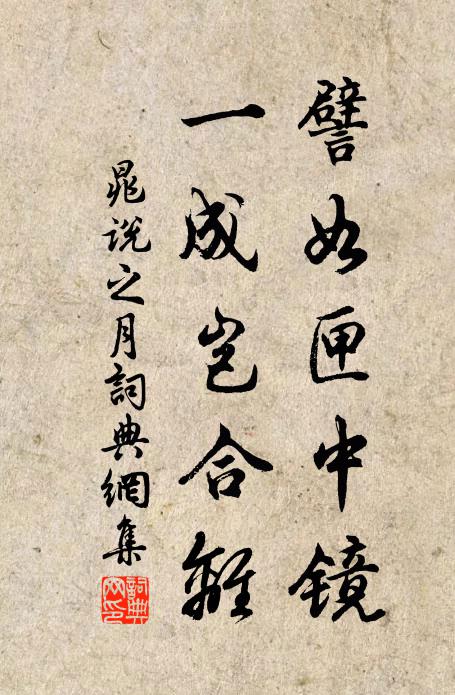 譬如匣中镜
一成岂合離
晁说之月詞典網集
詞典網印